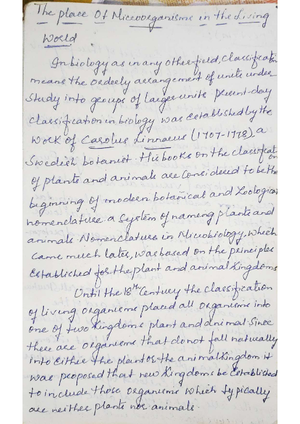 The place Of Microorganisms in the Living
World
In biology as in any other field, Classification
means the orderly arrangement of units under
study into groups of larger units present-day
classification in biology was established by the
work of Carolus Linnaeus (1707-1778), a
Swedish botanist. His books on the classification
of plants and animals are considered to be the
beginning of modern botanical and Zoological
nomenclature a system of naming plants and
animals Nomenclature in Microbiology, which
came much later, was based on the principles
established for the plant and animal Kingdoms
Until the 18th Century the classification
of living organisms placed all organisms into
one of two Kingdoms plant and animal Since
there are organisms that do not fall naturally
into either the plant or the animal Kingdom it
was proposed that new Kingdoms be established
to include those organisms which typically
are neither plants nor animals.